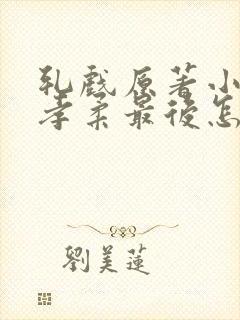 乳戲原著小
孝柔最後怎
劉美蓮